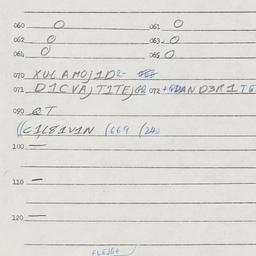 060 O 061 O
062 O 063 O
064 O 065 O
070 XULAMOJ1D
071 D1CVAJT1TEJ 072 +9DAND3R1TE
090 QT
((C1L81V1N (669 (240
100 —
110 —
120 —